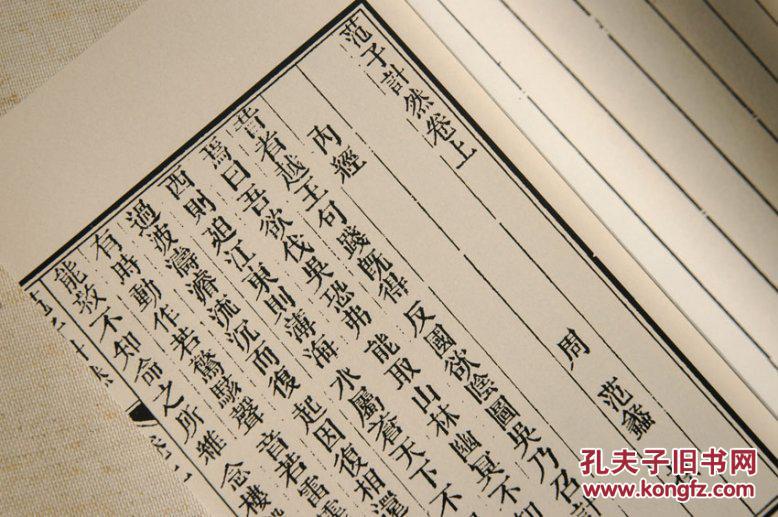 范子計然卷上
周 范蠡
內經
昔者越王句踐既得反國欲陰圖吳乃召計
焉曰吾欲伐吳恐弗能取山林幽冥不
西則迫江東則薄海水屬蒼天下不
過波濤濬流沉而復起因復相還
有時動作若驚駭聲音若雷
能救不知命之所維念樓
孔夫子旧书网
www.kongfz.com